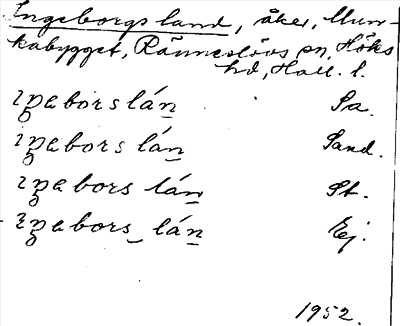 Ingeborgs land, åker, Mun-
kabygget, Ränneslövs sn, Höks
hd, Hall. l.
ıŋabors lán Sa.
ıŋabors lán Sand.
ıŋabors lán St.
ıŋabors lán Ej.
1952.